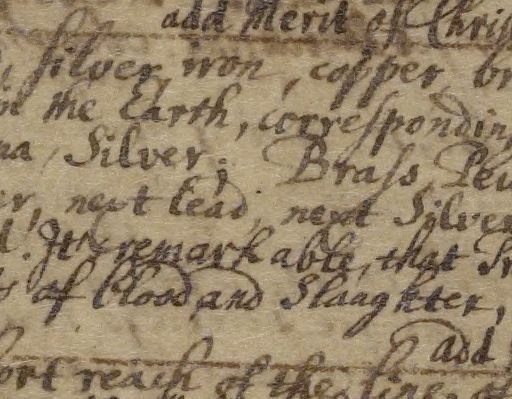 add Merit of Chris
silver, iron, copper, br
the Earth, correspondin
na, Silver; Brass Pew
er, next lead, next Silver
It's remarkable, that Ir
of blood and Slaughter,
add
ort reach of the line, of